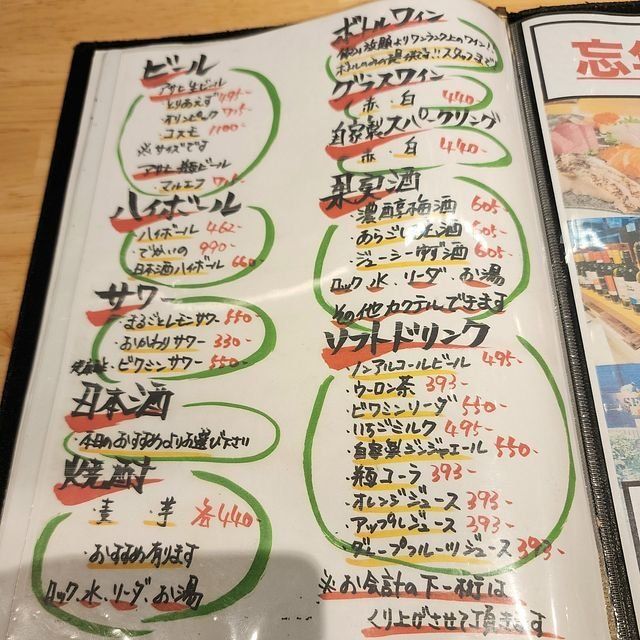 ビール
アサヒ生ビール
とりあえず 495-
オリンピック 715-
コスモ 1100-
※サイズです
アサヒ瓶ビール
マルエフ
ハイボール
ハイボール 462-
でかいの 990-
日本酒ハイボール 660-
サワー
・まるごとレモンサワー 550-
・おかわりサワー 330-
・ビワミンサワー 550-
日本酒
・今日のおすすめよりお選び下さい
焼酎
・麦 ・芋 各440-
・おすすめ有ります
ロック、水、ソーダ、お湯
ボトルワイン
飲み放題よりワンランク上のワイン!
グラスワイン
・赤・白 440-
自家製スパークリング
・赤・白 440-
果実酒
・濃醇梅酒 605-
・あらごし 酒 605-
・ジューシーゆず酒 605-
ロック、水、ソーダ、お湯
その他カクテルできます
ソフトドリンク
・ノンアルコールビール 495-
・ウーロン茶 393-
・ビワミンソーダ 550-
・いちごミルク 495-
・自家製ジンジャエール 550-
・瓶コーラ 393-
・オレンジジュース 393-
・アップルジュース 393-
・グレープフルーツジュース 393-
※お会計の下一桁は
くり上げさせて頂きます
忘